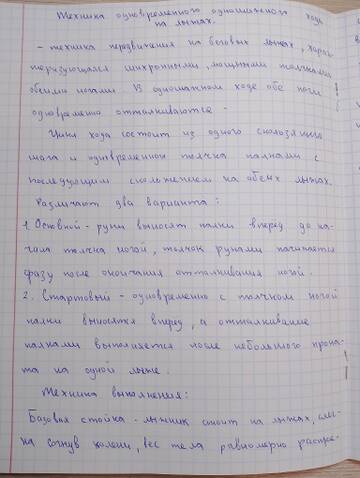 Техника одновременного одношажного хода
на лыжах.
- техника передвижения на беговых лыжах, харак-
теризующаяся синхронными, мощными толчками
обеими ногами. В одношажном ходе обе ноги
одновременно отталкиваются -
Цикл хода состоит из одного скользящего
шага и одновременном толчка палками с
последующим скольжением на обеих лыжах.
Различают два варианта:
1. Основной - руки выносят палки вперёд до на-
чала толчка ногой, толчок руками начинается
сразу после окончания отталкивания ногой.
2. Стартовый - одновременно с толчком ногой
палки выносятся вперёд, а отталкивание
палками выполняется после небольшого прока-
та на одной лыже.
Техника выполнения:
Базовая стойка - лыжник стоит на лыжах, слег-
ка согнув колени, вес тела равномерно распре-